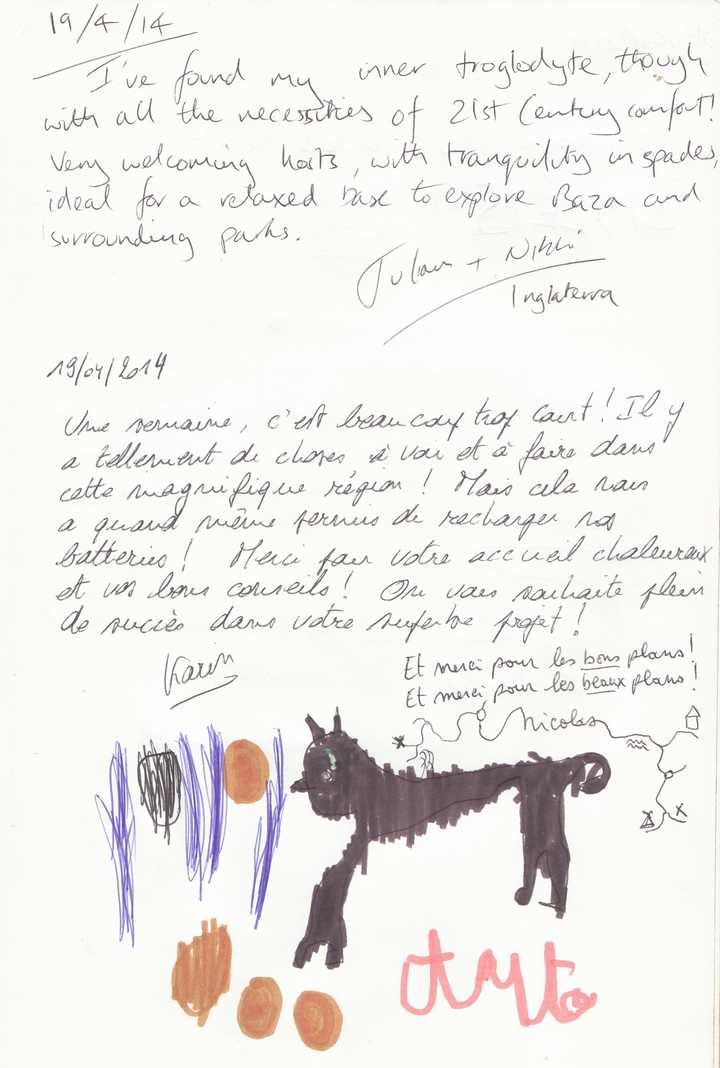 19/4/14
I've found my inner troglodyte, though
with all the necessities of 21st Century comfort!
Very welcoming hosts, with tranquility in spades,
ideal for a relaxed base to explore Baza and
surrounding parks.
Julian + Nikki
Inglaterra
19/04/2014
Une semaine, c'est beaucoup trop court! Il y
a tellement de choses à voir et à faire dans
cette magnifique région! Mais cela nous
a quand même permis de recharger nos
batteries! Merci pour votre accueil chaleureux
et vos bons conseils! On vous souhaite plein
de succès dans votre superbe projet!
Karin
Et merci pour les bons plans!
Et merci pour les beaux plans!
Nicolas